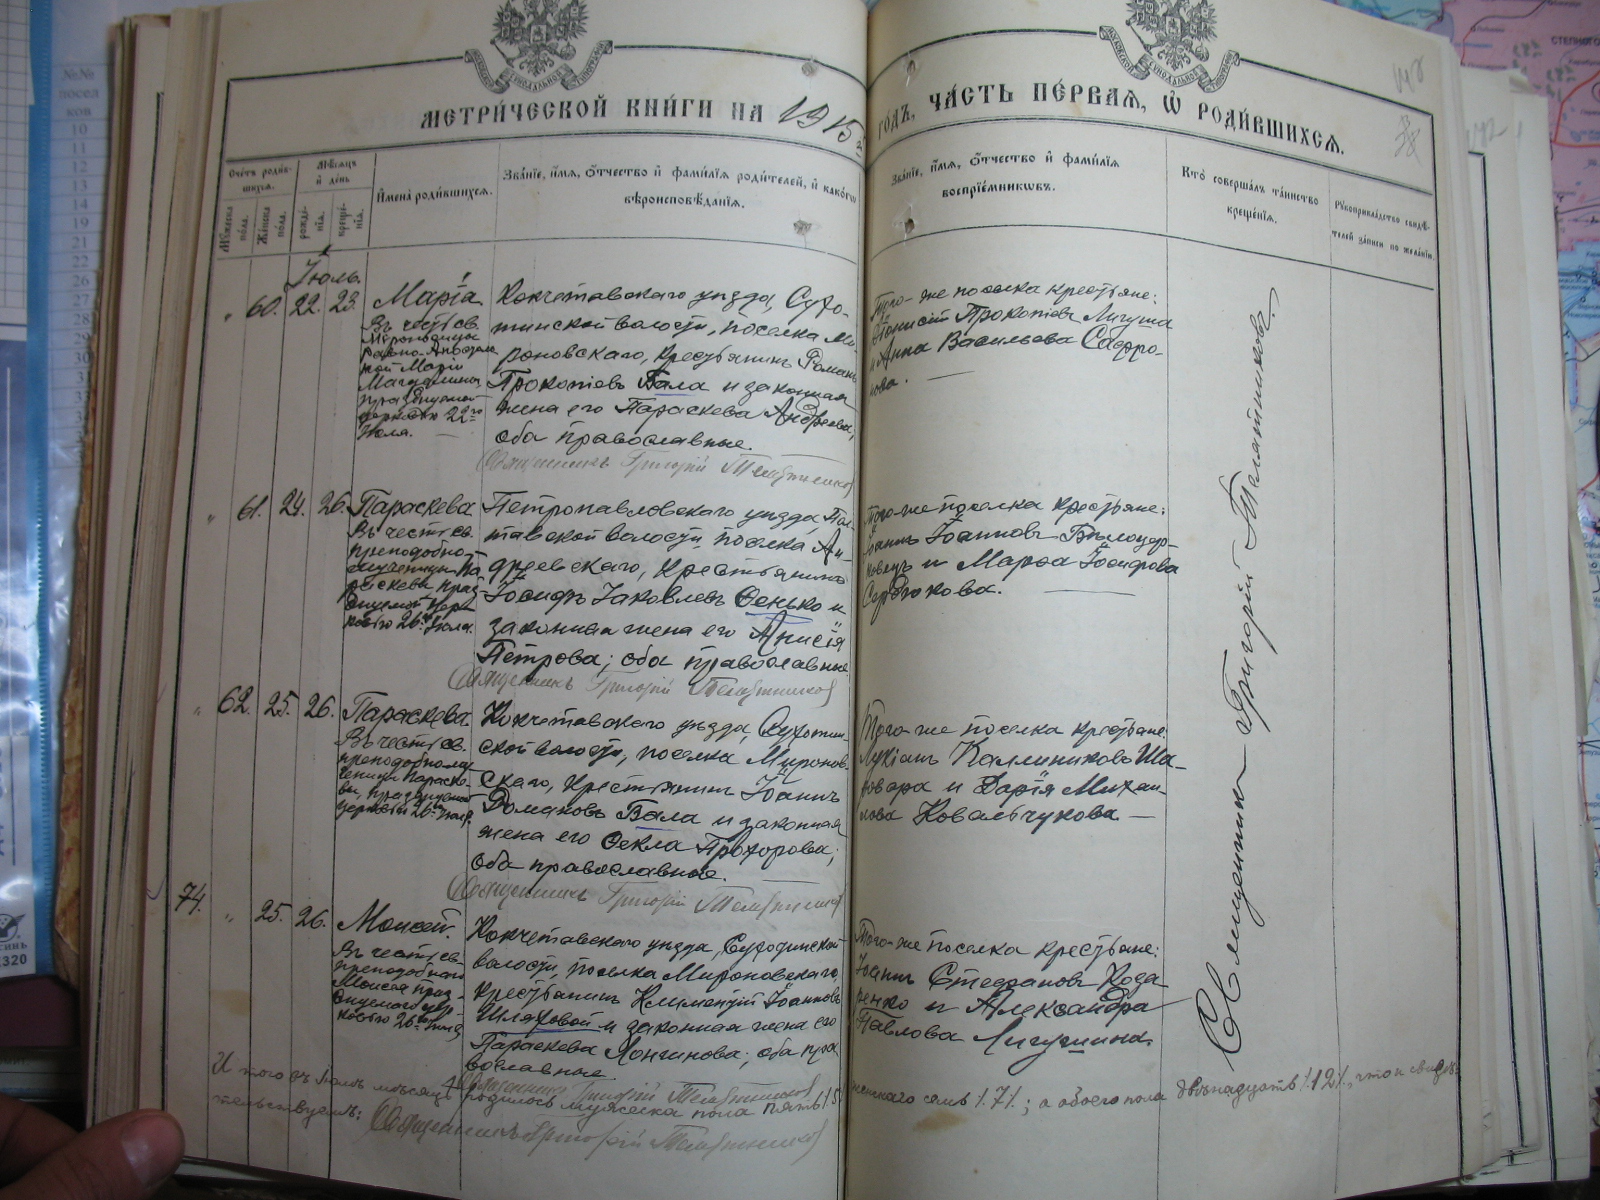 МЕТРИ́ЧЕСКОЙ КНИ́ГИ НА 1915
ГО́ДЪ, ЧА́СТЬ ПЕ́РВАЯ, Ѡ҆ РОДИ́ВШИХСЯ.
Сче́тъ роди́вшихся.
Му́жеска по́ла.
Же́нска по́ла.
Мѣ́сяцъ и҆ де́нь
рожде́нїѧ.
креще́нїѧ.
И҆мена̀ роди́вшихся.
Зва́нїе, и҆́мя, ѻ҆́тчество и҆ фами́лїя роди́телей, и҆ како́гѡ
вѣроисповѣ́данїя.
Зва́нїе, и҆́мя, ѻ҆́тчество и҆ фами́лїя
воспрїе́мникѡвъ.
Кто̀ соверша́лъ та́инство
креще́нїя.
Рꙋкоприкла́дство свидѣ́-
телей за́писи по жела́нїю.
Іюль.
60. 22. 23. Марія
Въ честь св.
Мѵроносицы
равно-Апостоль
ной Маріи
Магдалины,
празднуемой
церковью 22го
Іюля.
Кокчетавскаго уѣзда, Сухо-
тинской волости, поселка Ми-
роновскаго, крестьянинъ Романъ
Прокопіевъ Бала и законная
жена его Параскева Андреева,
оба православные.
Священникъ Григорій Телятников
Того-же поселка крестьяне:
Діонисій Прокопіев Лигуша
и Анна Васильева Сафро-
нова.
61. 24. 26. Параскева
Въ честь св.
преподобно-
мученицы Па
раскевы праз-
днуемой церк
ковью 26го Іюля.
Петропавловскаго уѣзда Пол-
тавской волости, поселка Ан-
дреевскаго, крестьянинъ
Іосифъ Іаковлевъ Сенько и
законная жена его Анисія
Петрова; оба православные
Священникъ Григорій Телятников
Того-же поселка крестьяне:
Іоаннъ Іоанновъ Бѣлоцер-
ковецъ и Марѳа Іосифова
Сердюкова.
62. 25. 26. Параскева.
Въ честь св.
преподобному
ченицы Параске-
вы, празднуемой
церковью 26го Іюля.
Кокчетавскаго уѣзда, Сухотин-
ской волости, поселка Миронов-
скаго, крестьянинъ Іоаннъ
Романовъ Бала и законная
жена его Ѳекла Прохорова;
оба православные.
Священникъ Григорій Телятников
Того-же поселка крестьяне:
Лукіанъ Каллиниковъ Ша-
ровара и Дарія Михаи-
лова Ковальчукова
74. 25. 26. Моисей.
Въ честь св.
преподобнаго
Моисея праз-
днуемаго цер-
ковью 26го Іюля
Кокчетавскаго уѣзда, Сухотинской
волости, поселка Мироновскаго,
крестьянинъ Климентій Іоанновъ
Шляховой и законная жена его
Параскева Лонгинова; оба пра
вославные.
Священникъ Григорій Телятников
Того-же поселка крестьяне:
Іоаннъ Стефановъ Кода
ренко и Александра
Павлова Лигушина.
Священникъ Григорій Телятниковъ.
Итого въ Іюлѣ мѣсяцѣ родилось мужеска пола пять /5/
женскаго семь /7/; а обоего пола двѣнадцать /12/, что и свидѣ-
тельствуемъ:
Священникъ Григорій Телятников